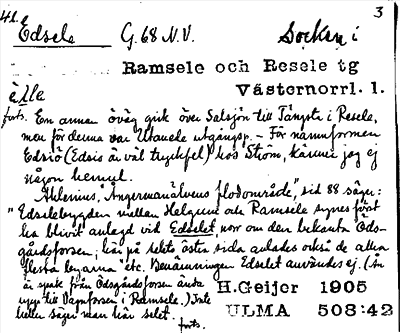 41. Edsele G. 68 N.V. Socken i 3
Ramsele och Resele tg
Västernorrl. l.
èlle
forts. Em annan öväg gick över Salsjön till Tängsta i Resele,
men för denna var Utanede utgångsp. – För namnformen
Edsiö (Edsis är väl tryckfel) hos Ström, känner jag ej
någon hemul.
Ahlenius, "Ångermanälvens flodområde", sid 88 säger:
"Edselebygden mellan Helgum och Ramsele synes först
ha blivit anlagd vid Edselet, nor om den bekanta Öds-
gårdsforsen; här på sekts östra sida anlades också de allra
flesta byarna" etc. Benämningen Edselet användes ej. (Än
är spak från Ödsgårdsforsen ända
upp till Vägnforsen i Ramsele.) Inte
heller säger man här selet.
forts.
H. Geijer 1905
ULMA 508:42